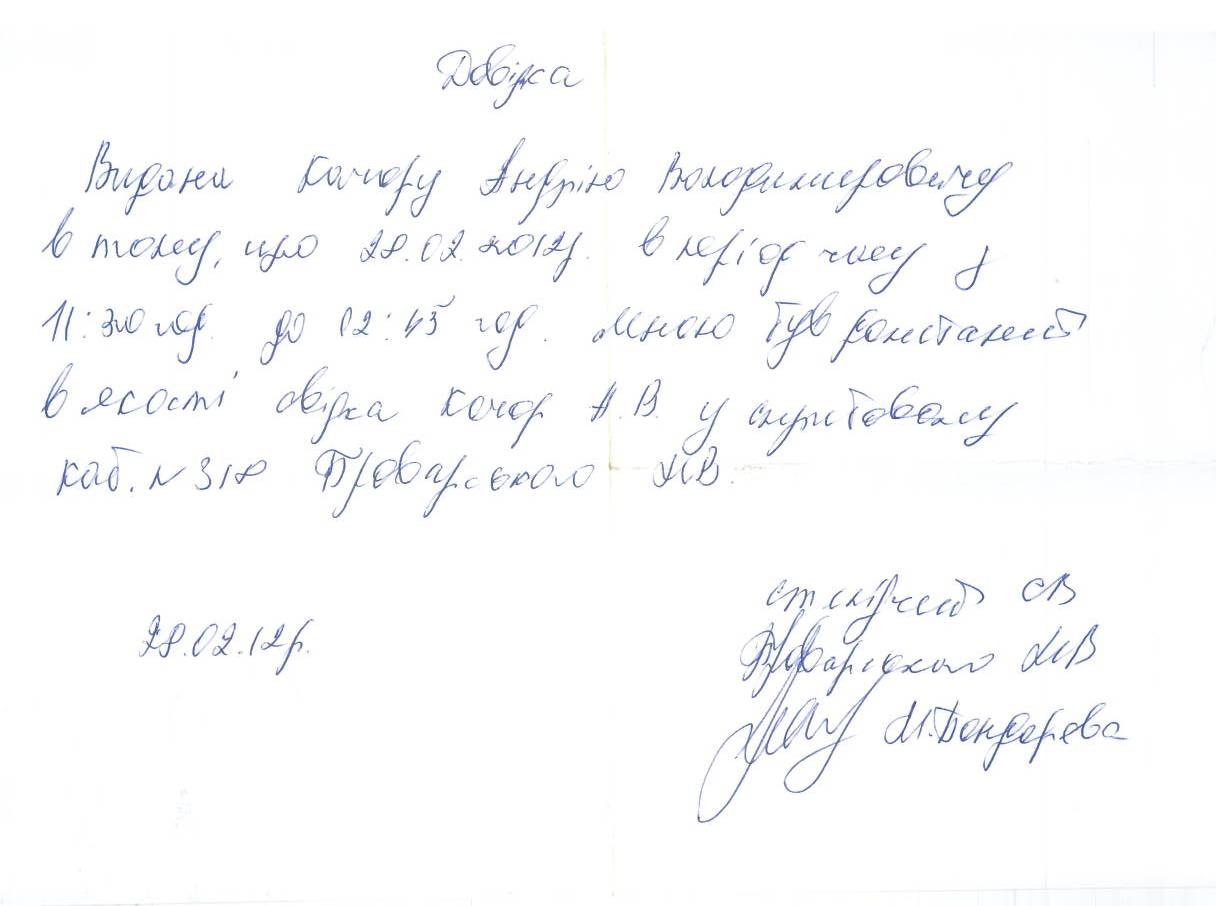 Довідка
Видана Качору Андрію Володимировичу
в тому, що 28.02.2012р. в період часу з
11:30 год. до 12:45 год. мною був допитаний
в якості свідка Качор А.В. у службовому
каб. № 318 Броварського МВ.
ст. слідчий СВ
28.02.12р.
Броварського МВ
М. Бондарєва